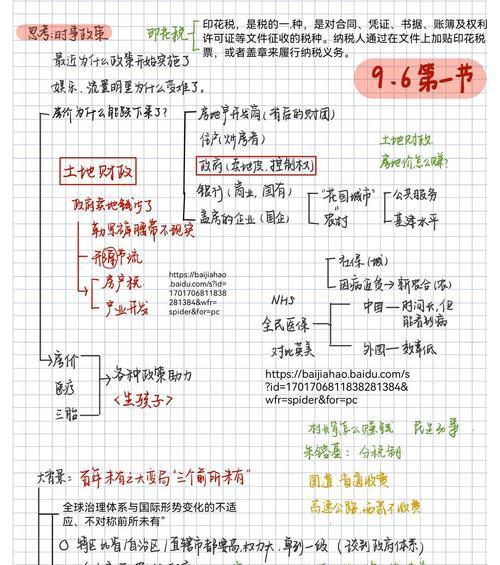 思考:时事政策
印花税
印花税，是税的一种，是对合同、凭证、书据、账簿及权利
许可证等文件征收的税种。纳税人通过在文件上加贴印花税
票，或者盖章来履行纳税义务。
最近为什么政策开始实施了
娱乐、流量明星为什么变难了.
9.6第一节
房价为什么能跌下来了?
房地产开发商(背后的财团)
住户(炒房者)
政府(卖地皮,控制权)
银行(商业,国有)
盖房的企业(国企)
土地财政
房地价怎么赚?
"花园城市"
农村
公共服务
基建水平
土地财政
政府卖地钱少了
勒紧裤腰带不现实
开源节流
房产税
产业开发
https://baijiahao.
baidu.com/s?id=
1701706811838
281384&wfr=
spider&for=pc
NHS
全民医保
对比英美
社保(城)
因病直受
新农合(农)
中国
时间长,但
能看到病
外国
效率低
https://baijiahao.baidu.com/s
?id=1701706811838281384&
wfr=spider&for=pc
房价
医疗
三胎
各种政策助力
<生孩子>
怎么赚钱
民生
分税制
国道 普通收费
高速公路
不收费
大背景:
百年未有之大变局"三个前所未有"
全球治理体系与国际形势变化的不适
应、不对称前所未有”
特区比省/自治区/直辖市都要高,权力大,单到一级 (谈到政府体系)